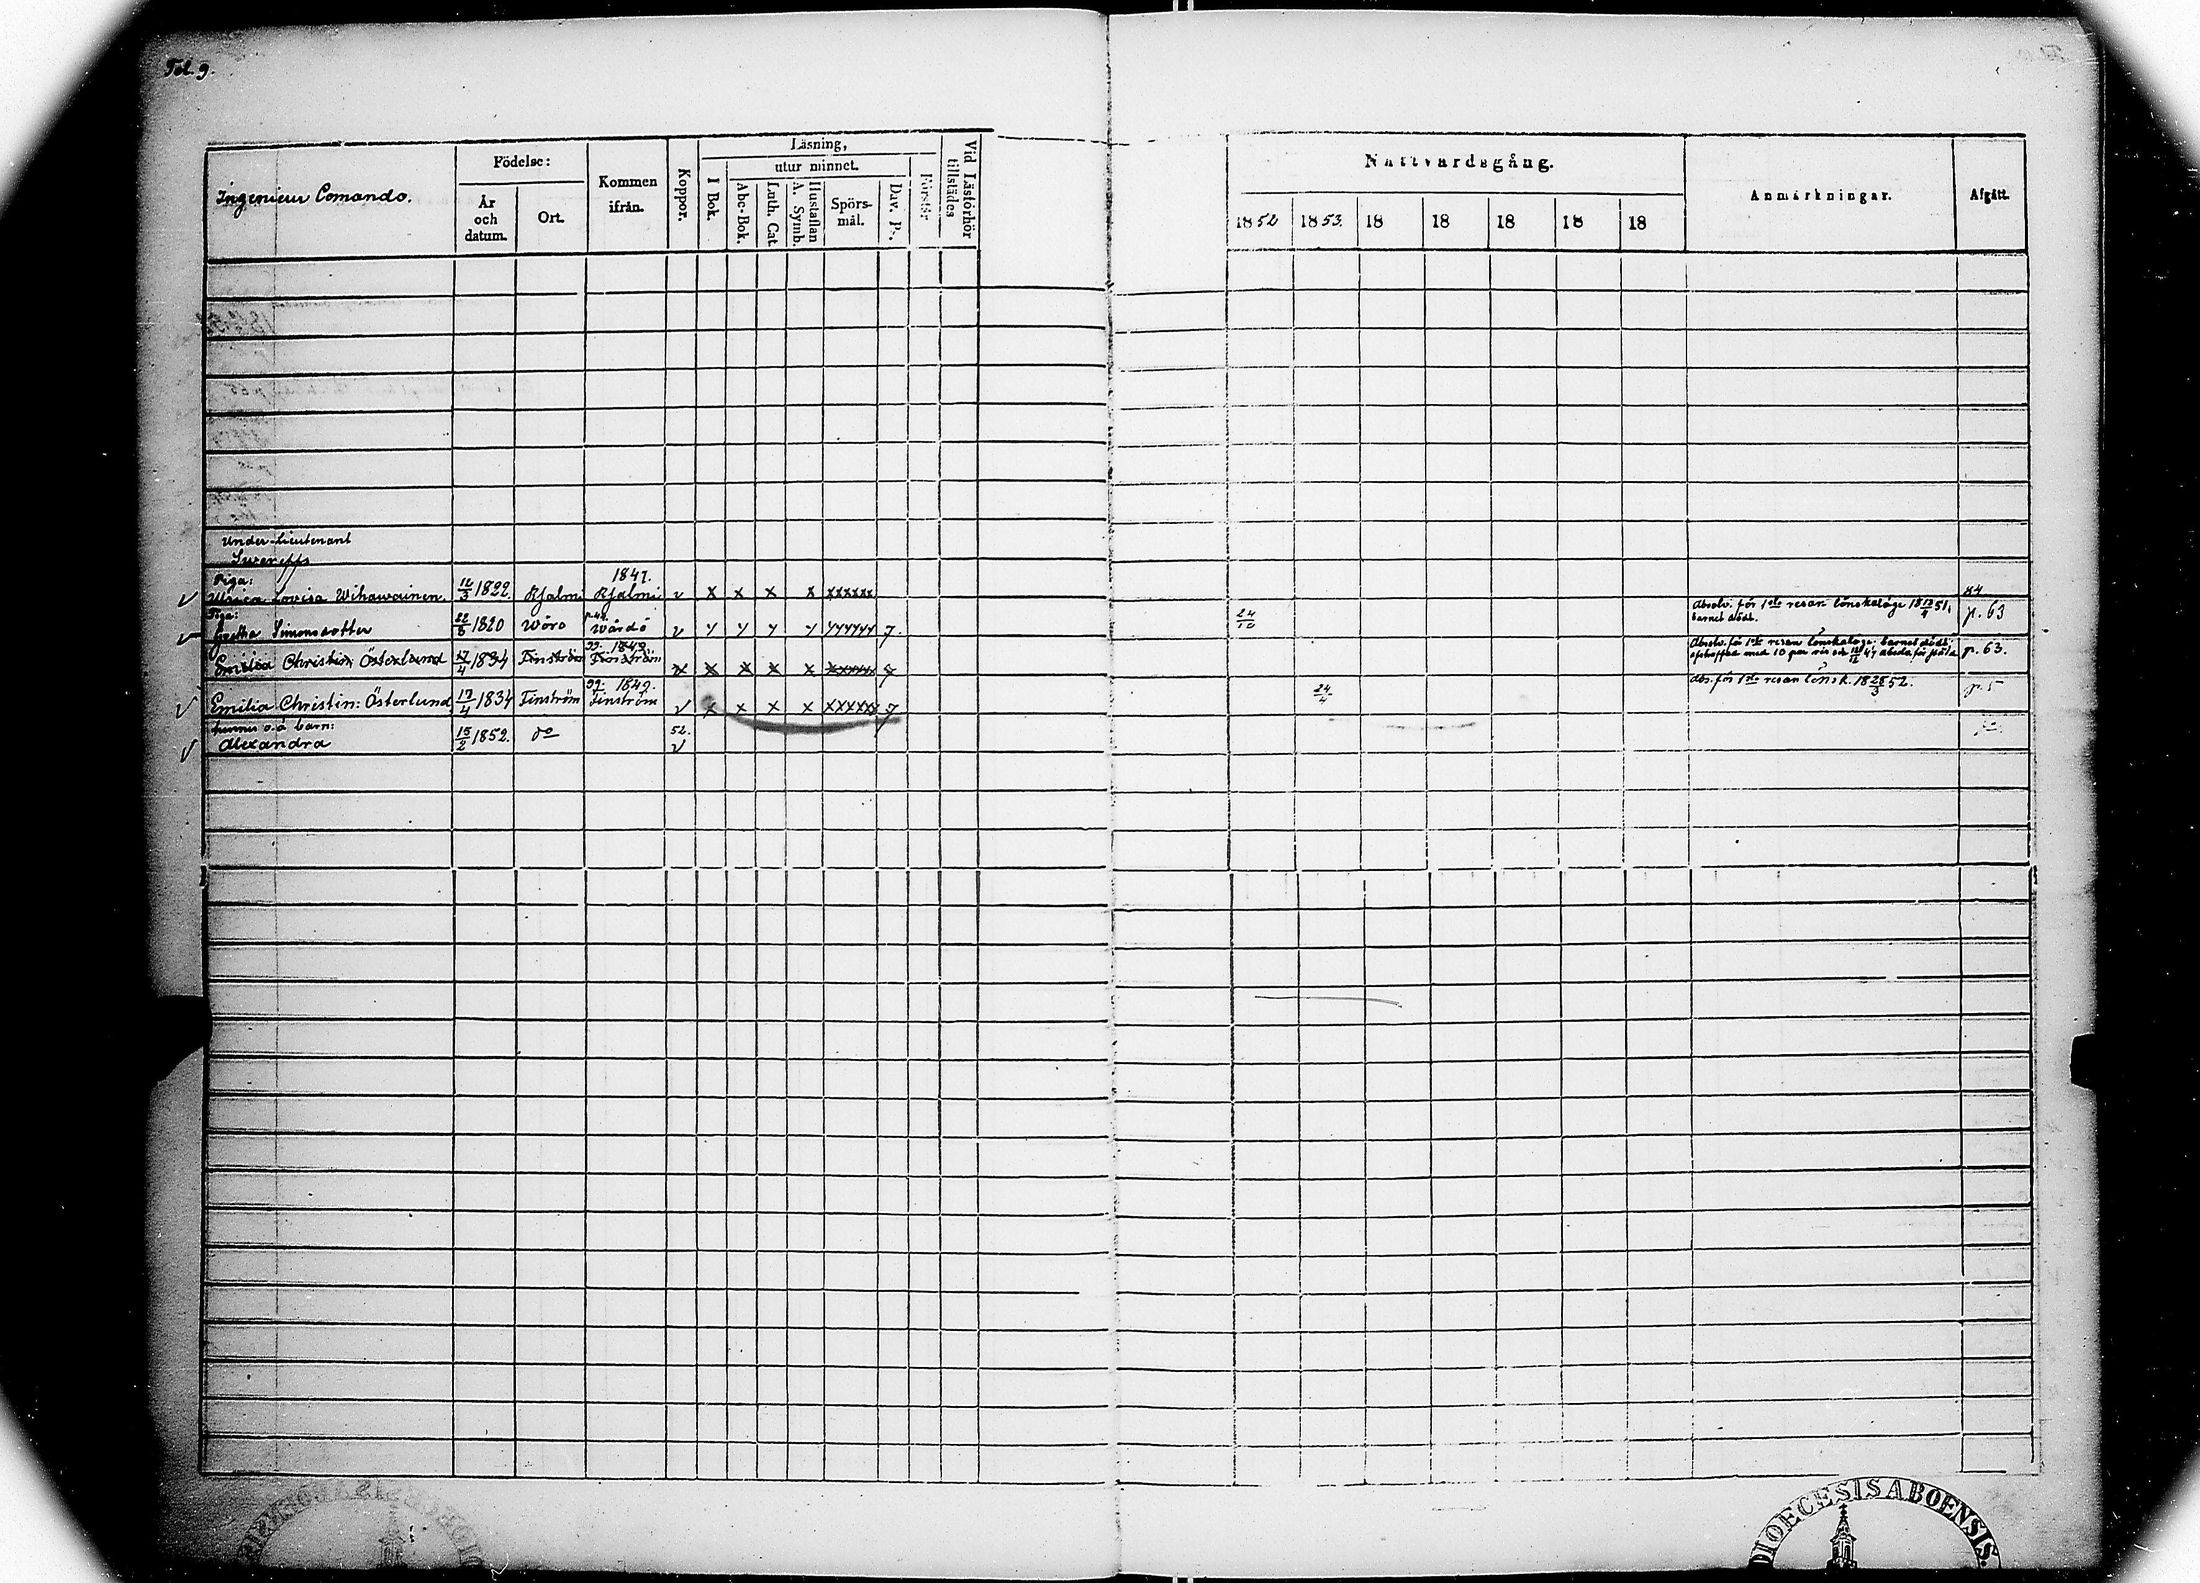 Fol. 9.
Ingenieur Comando.
Födelse:
År och datum.
Ort.
Kommen ifrån.
Koppor.
Läsning,
I Bok.
utur minnet.
Abc-Bok.
Luth. Cat.
Hustaflan A. Symb.
Spörs-mål.
Dav. Ps.
Förstår.
Vid Läsförhör tillstädes
Nattvardsgång.
1852 1853. 18 18 18 18 18
Anmärkningar.
Afgått.
Under-Lieutenant
Piga: 1847. 54
Ulrica Lovisa Wihawainen 12/3 1822. Kjalmi Kjalmi v x x x x xxxxxx
Piga:
Gretha Simonsdotter 22/8 1820 Wörå Wårdö v y y y y yyyyyy 7. 24/10 Absolv. för 1sta resan lönskaläge 18 13/4 51, barnet dödt. p. 63
99. 1849.
Emilia Christin: Österlund 17/4 1834 Finström Finström v x x x x xxxxxx 7 Absolv. för 1sta resan lönskaläge barnet dödt p. 63.
99. 1849.
Emilia Christin: Österlund 17/4 1834 Finström Finström v x x x x xxxxxx 7 24/4 Abs. för 1sta resan lönsk. 18 28/3 52. p. 5
hennes o.ä barn:
Alexandra 15/2 1852. do 52. v
DIOECESIS ABOENSIS.